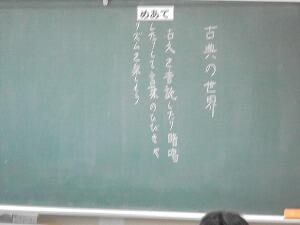 古典の世界
めあて
古文を音読したり暗唱
したりして言葉のひびきや
リズムを楽しもう